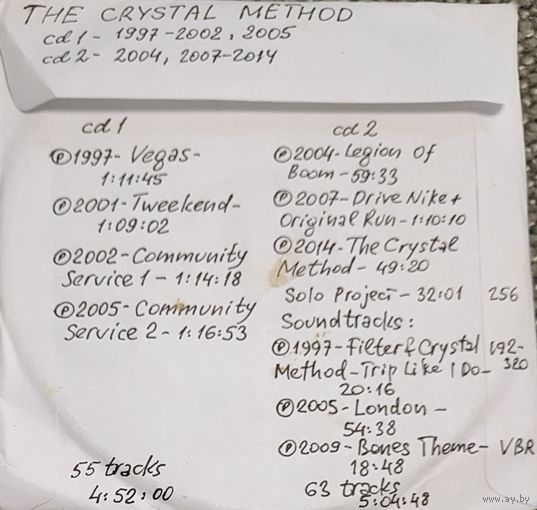 THE CRYSTAL METHOD
cd 1 - 1997-2002, 2005
cd 2 - 2004, 2007-2014
cd 1
Ⓟ1997- Vegas-
1:11:45
Ⓟ2001-Tweekend-
1:09:02
Ⓟ2002-Community
Service 1 - 1:14:18
Ⓟ2005-Community
Service 2 - 1:16:53
55 tracks
4:52:00
cd 2
Ⓟ2004-Legion Of
Boom-59:33
Ⓟ2007-Drive Nike+
Original Run-1:10:10
Ⓟ2014-The Crystal
Method-49:20
Solo Project-32:01 256
Soundtracks:
Ⓟ1997-Filter & Crystal 192-
Method-Trip Like I Do- 320
20:16
Ⓟ2005-London-
54:38
Ⓟ2009-Bones Theme- VBR
18:48
63 tracks
5:04:48
www.ay.by